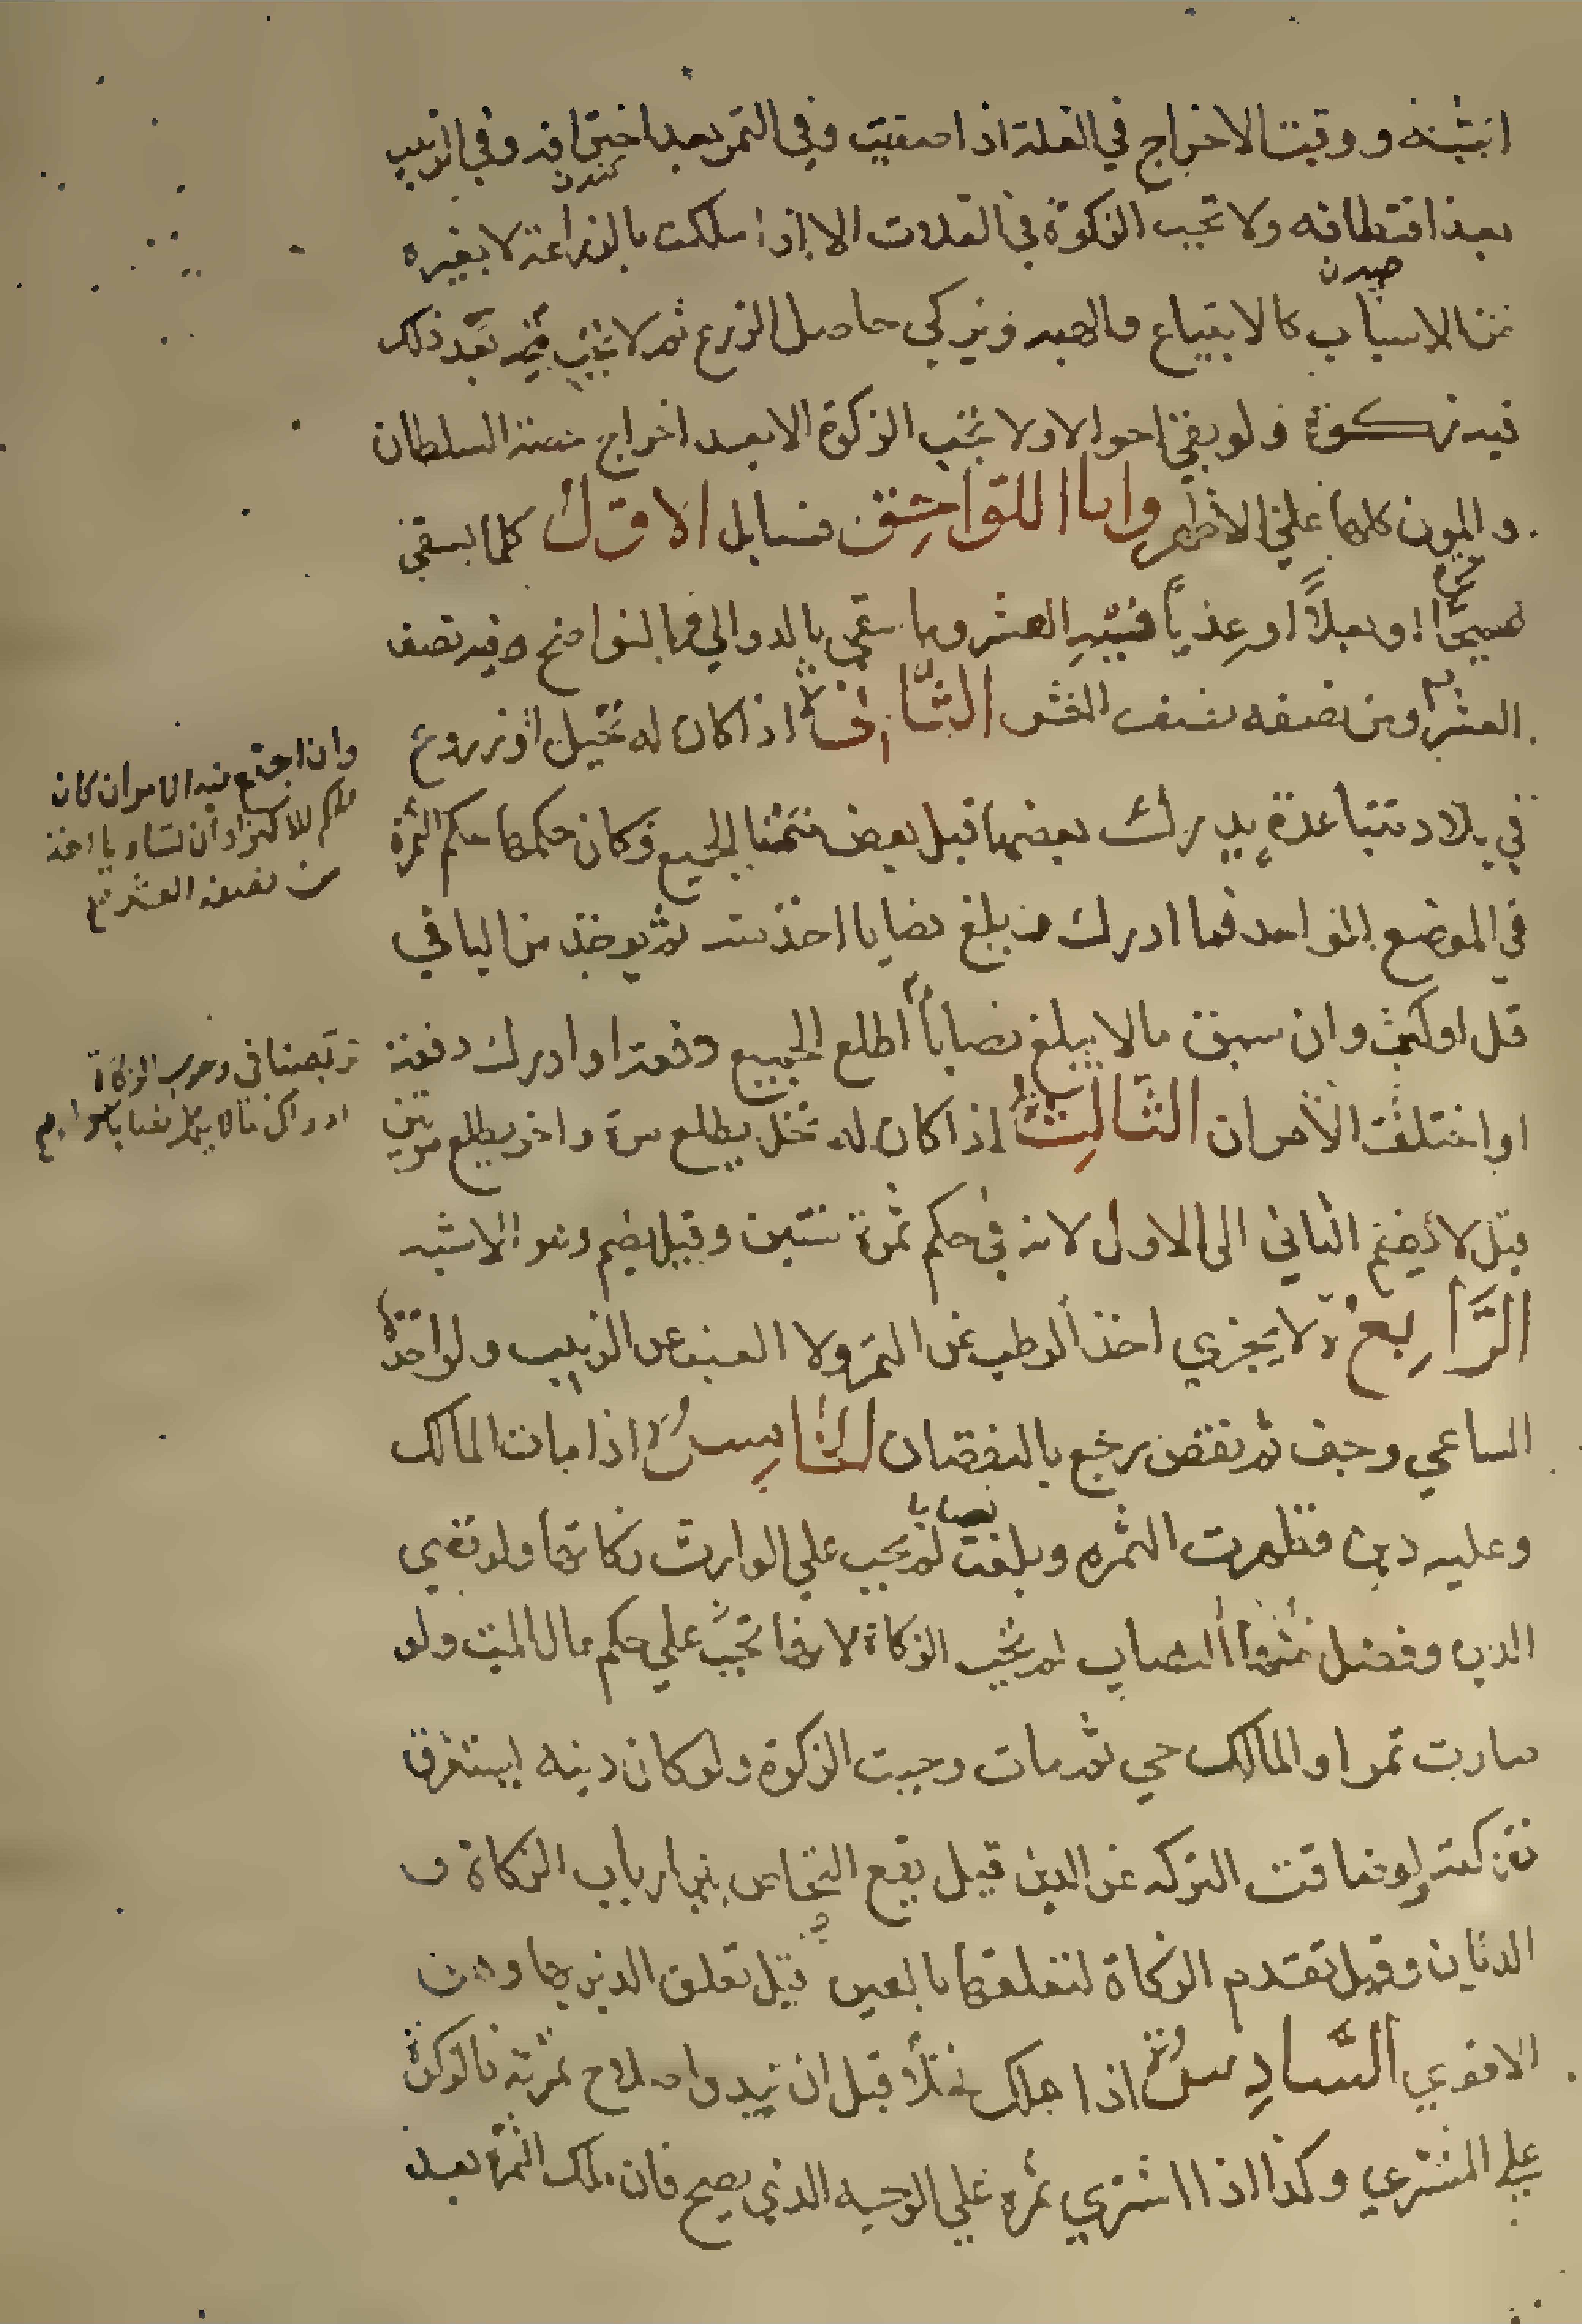 اشبه ووقت الاخراج في الغلة اذا صفيت وفي التمر بعد اخترافه وفي الزبيب
بعد اقتطافه ولا تجب الزكوة في الغلات الا اذا ملكت بالزراعة لا بغيره
من الاسباب كالابتياع والهبه ويزكي حاصل الزرع ثم لا تجب بعد ذلك
فيه زكوة ولو بقي احوالا ولا تجب الزكوة الا بعد اخراج حصة السلطان
والمون كلها علي الاظهر واما اللواحق فمسايل الاول كلما سقي
سيحا او بعلاً او عذياً ففيه العشر وما سقي بالدوالي والنواضح وفيه نصف
العشر ومن نصفه نصف العشر الثاني اذا كان له نخيل او زروع
في بلاد متباعدة يدرك بعضها قبل بعض ضممنا الجميع وكان حكمها حكم الثمرة
في الموضع الواحد فما ادرك وبلغ نصابا اخذ منه ثم يوخذ من الباقي
قل او كثر وان سبق ما لا يبلغ نصاباً
اطلع الجميع دفعة او ادرك دفعة
او اختلف الامران الثالث اذا كان له نخل يطلع مرة واخر يطلع مرتين
قيل لا يضم الثاني الى الاول لانه في حكم ثمرة سنتين وقيل يضم وهو الاشبه
الرابع لا يجزي اخذ الرطب عن التمر ولا العنب عن الزبيب ولو اخذه
الساعي وجف ثم نقص رجع بالنقصان الخامس اذا مات المالك
وعليه دين فظهرت الثمره وبلغت نصابا لم يجب علي الوارث زكاتها ولو قضي
الدين وفضل منها النصاب لم تجب الزكاة لانها تجب علي حكم مال الميت ولو
صارت تمرا والمالك حي ثم مات وجبت الزكوة ولو كان دينه يستغرق
تركته ولو ضاقت التركه عن الدين قيل يقع التحاص بين ارباب الزكاة و
الديان وقيل تقدم الزكاة لتعلقها بالعين قبل تعلق الدين بها وهو
الاقوي السادس اذا ملك نخلاً قبل ان يبدوا صلاح ثمرته فالزكوة
علي المشتري وكذا اذا اشتري ثمرة علي الوجه الذي يصح فان ملك الثمرة بعد
وان اجتمع فيه الامران كان
الحكم للاكثر وان تساويا اخذ
من نصفه العشر
تربصنا في وجوب الزكاة
ادراك ما يكمل نصابا